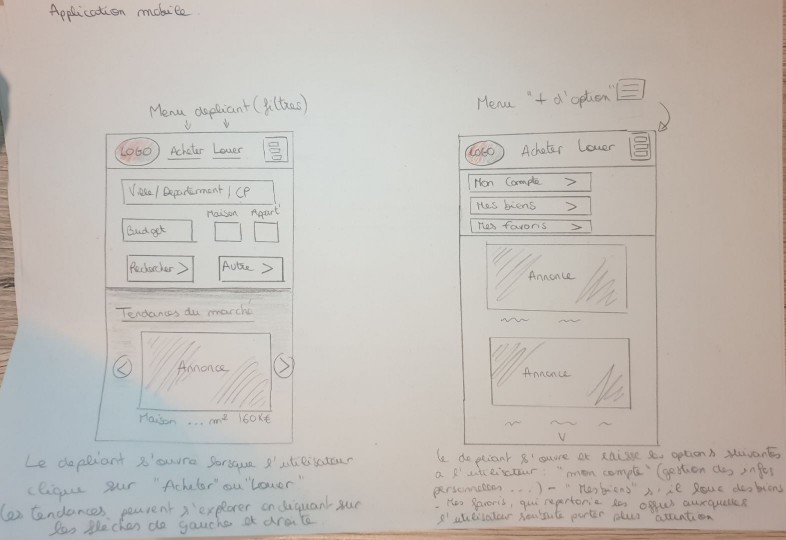 Application mobile
Menu depliant (filtres)
LOGO Acheter Louer
Ville / Département / CP
Maison Apart'
Budget
Rechercher > Autre >
Tendances du marché
< Annonce >
Maison ... m² 160K€
Le depliant s'ouvre lorsque l'utilisateur
clique sur "Acheter" ou "Louer"
Les tendances peuvent s'explorer en cliquant sur
les flèches de gauche et droite.
Menu "+ d'option"
LOGO Acheter Louer
Mon Compte >
Mes biens >
Mes favoris >
Annonce
Annonce
le depliant s'ouvre et laisse les options suivantes
a l'utilisateur : "mon compte" (gestion des infos
personnelles ...) - "Mes biens" s'il loue des biens
- Mes favoris, qui repertorie les offres auxquelles
l'utilisateur souhaite porter plus attention